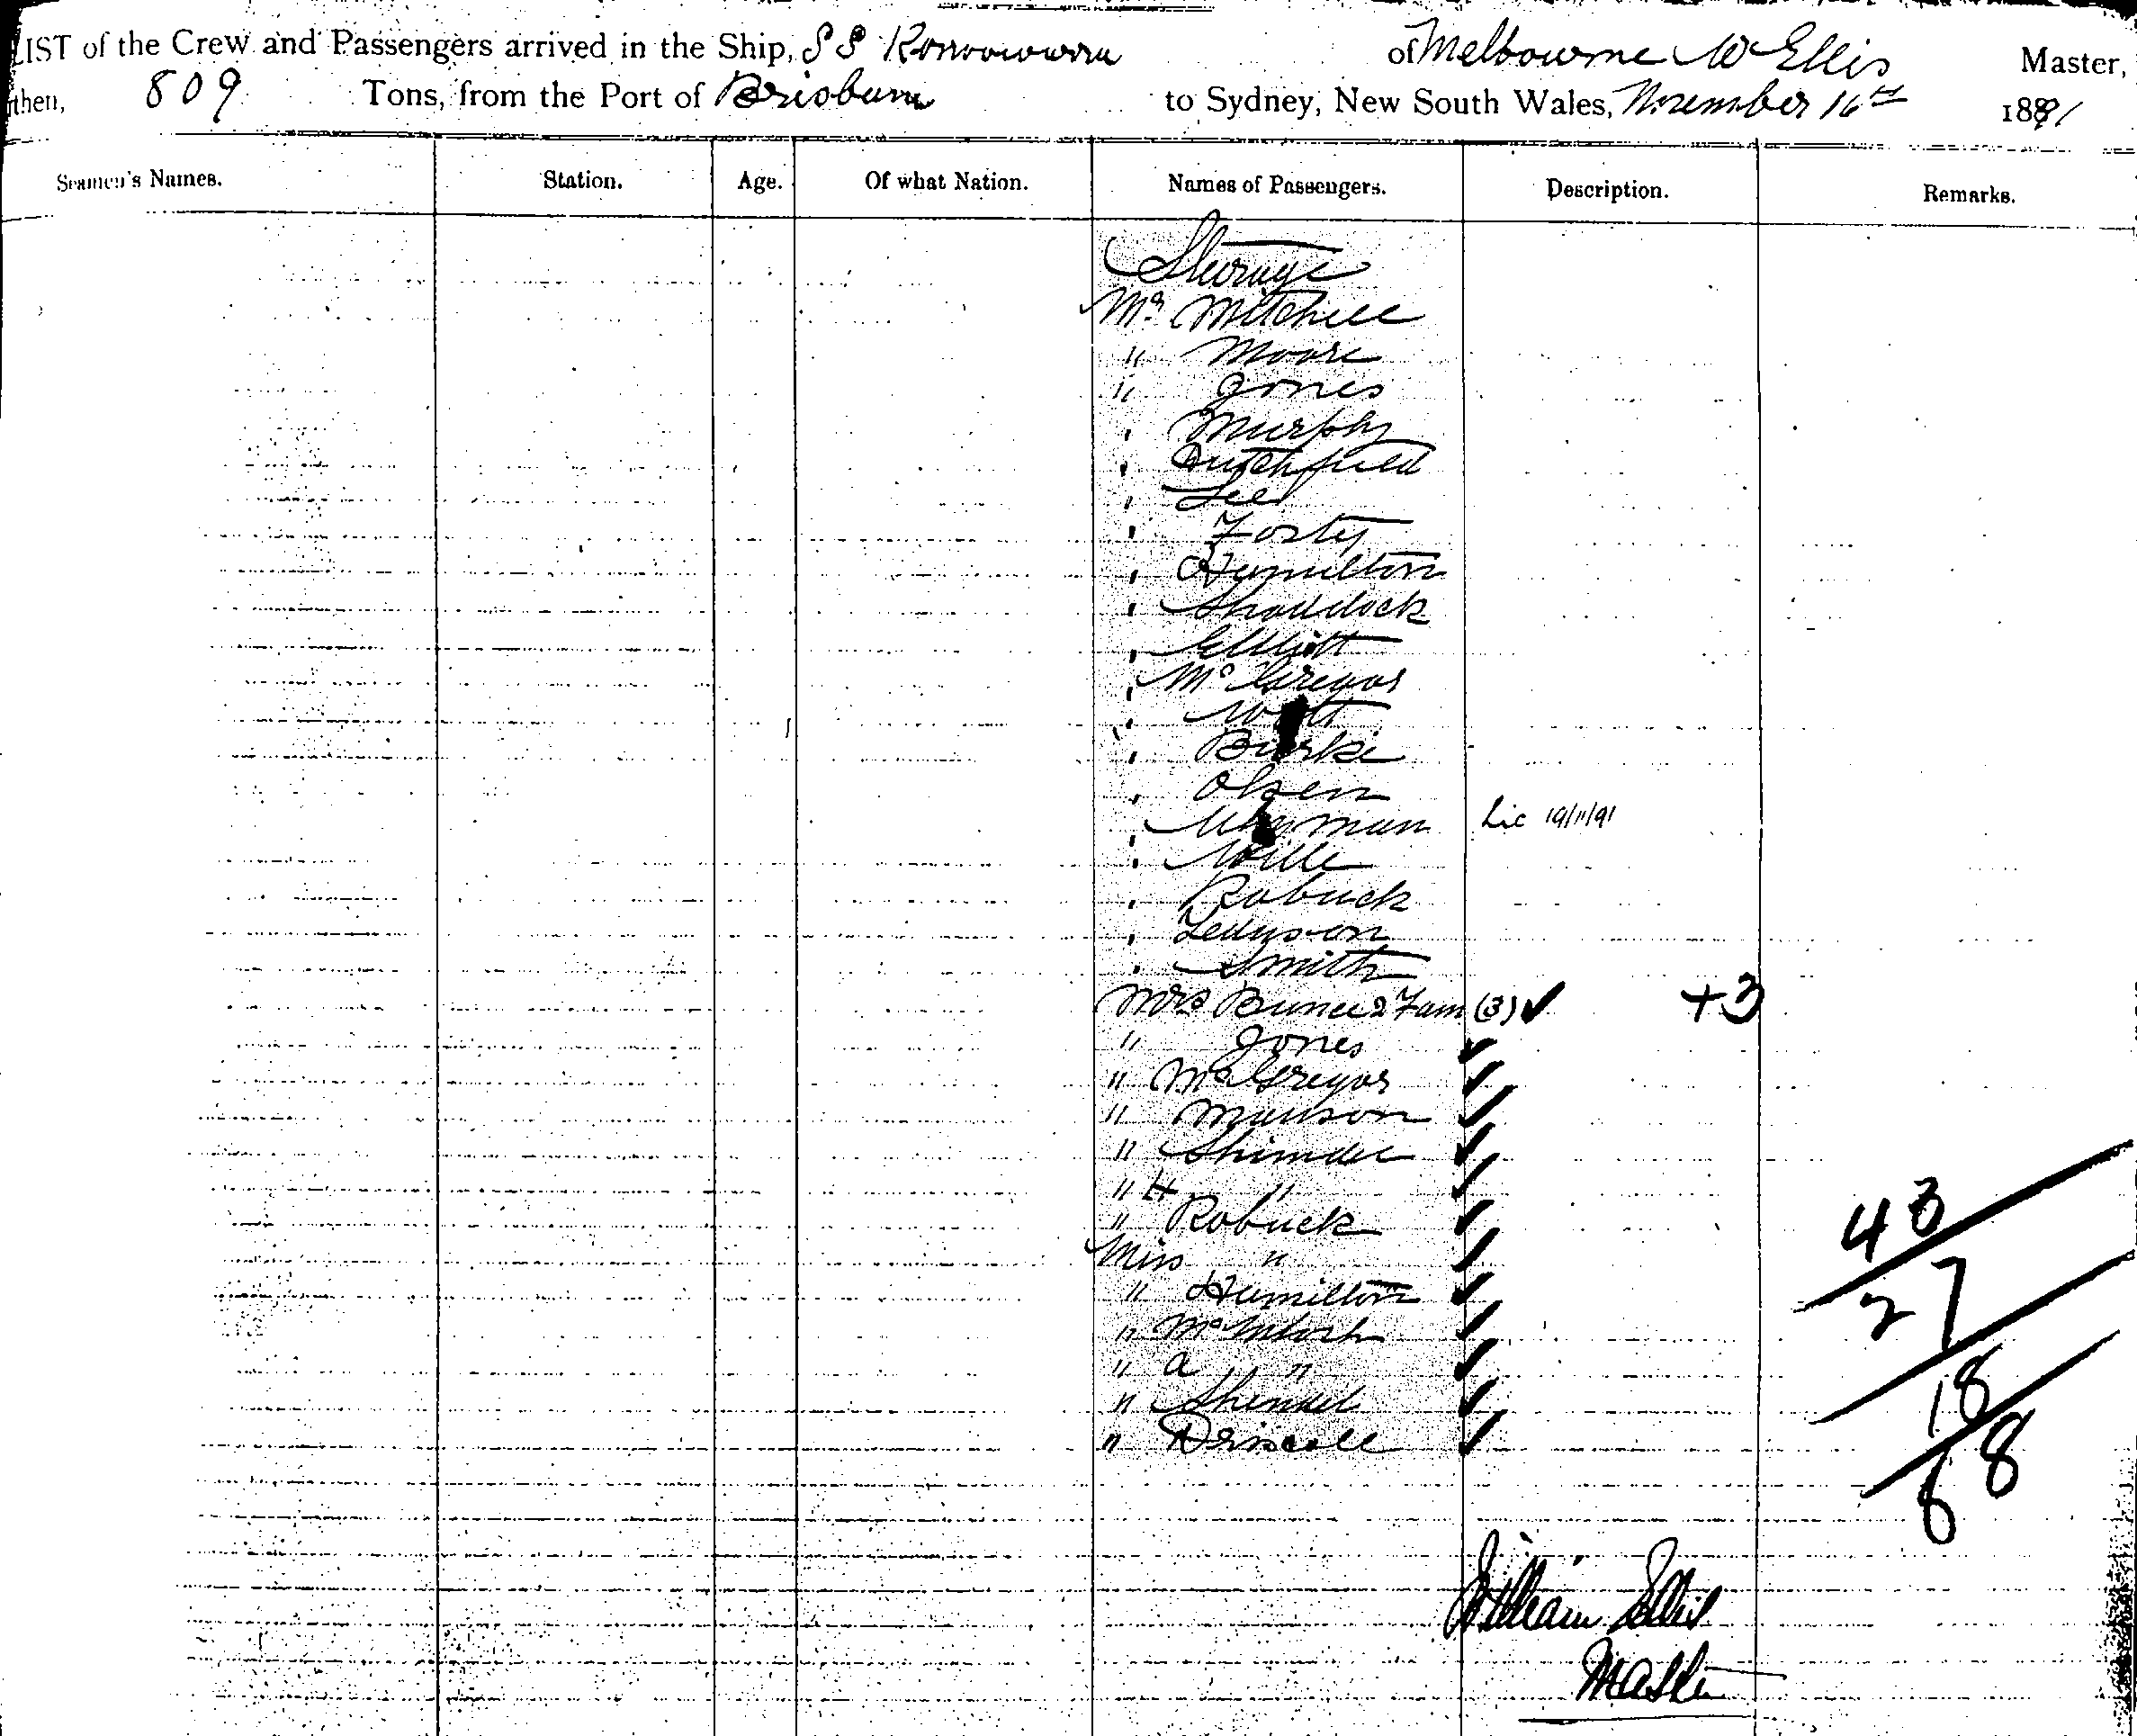 LIST of the Crew and Passengers arrived in the Ship, S S Konoowarra of Melbourne W Ellis Master,
then, 809 Tons, from the Port of Brisbane to Sydney, New South Wales, November 16th 1891
Seamen's Names. Station. Age. Of what Nation. Names of Passengers. Description. Remarks.
Steerage
Mr Mitchell
" Moore
" Jones
" Murphy
" Hutchfield
" Lee
" Forty
" Hamilton
" Shaddock
" Elliott
" McGregor
" Watt
" Burke
" Olsen
" man Lic 19/11/91
" Wille
" Robuck
" Smith
Mrs Bunce & Fam (3) ✓ +3
" Jones ✓
" McGregor ✓
" Manson ✓
" ✓
" H " ✓
" Robuck ✓
Miss " ✓
" Hamilton ✓
" McIntosh ✓
" A " ✓
" ✓
" Driscoll ✓
43
27
18
68
William Ellis
Master